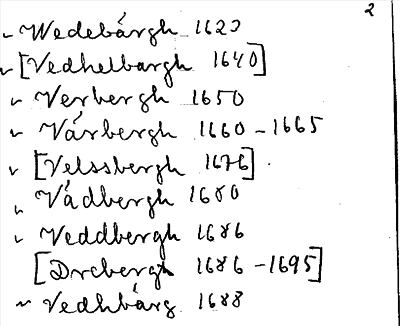 2
Wedebårgh 1620
[Vedhelbargh 1640]
Verbergh 1650
Vårbergh 1660-1665
[Velssbergh 1676]
Vådbergh 1680
Veddbergh 1686
[Drebergh 1686-1695]
Vedhbårg 1688